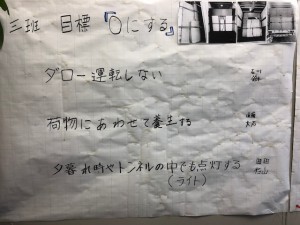 三班 目標『0にする』
ダロー運転しない
荷物にあわせて養生する
夕暮れ時やトンネルの中でも点灯する
(ライト)